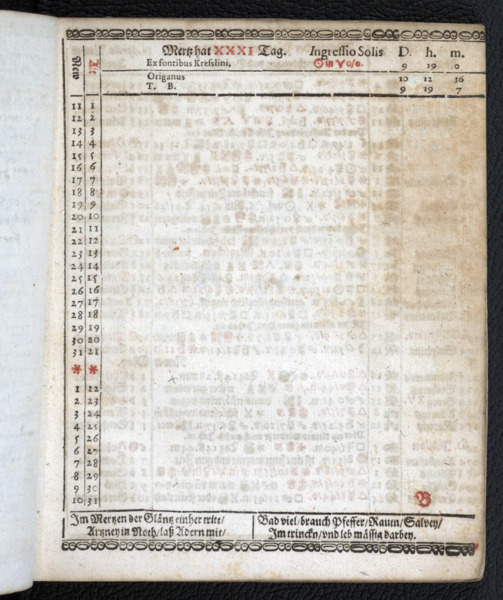 Mertz hat XXXI Tag. Ingressio Solis D. h. m.
Ex fontibus Kreßlini. ☉ in ♈ 0/0. 9 19 0
Origanus 10 12 36
T. B. 9 19 7
11 1
12 2
13 3
14 4
15 5
16 6
17 7
18 8
19 9
20 10
21 11
22 12
23 13
24 14
25 15
26 16
27 17
28 18
29 19
30 20
31 21
* *
1 22
2 23
3 24
4 25
5 26
6 27
7 28
8 29
9 30
10 31
B
Im Mertzen der Gläntz einher tritt/
Artzney in Noth/laß Adern mit/
Bad viel/brauch Pfeffer/Rauten/Salvey/
Im trincken/vnd leb mässig darbey.